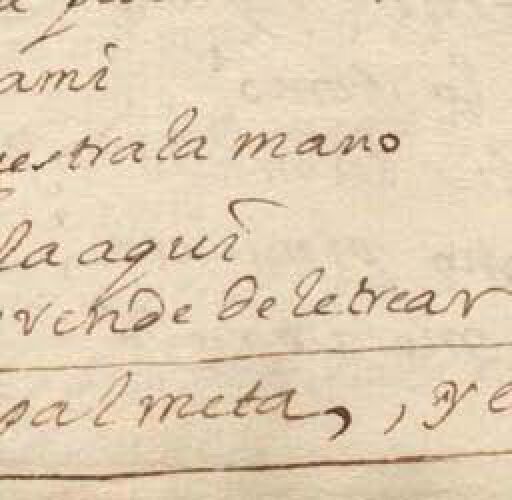 ami
uestra la mano
la aqui
rende de letrear
palmeta, , y e